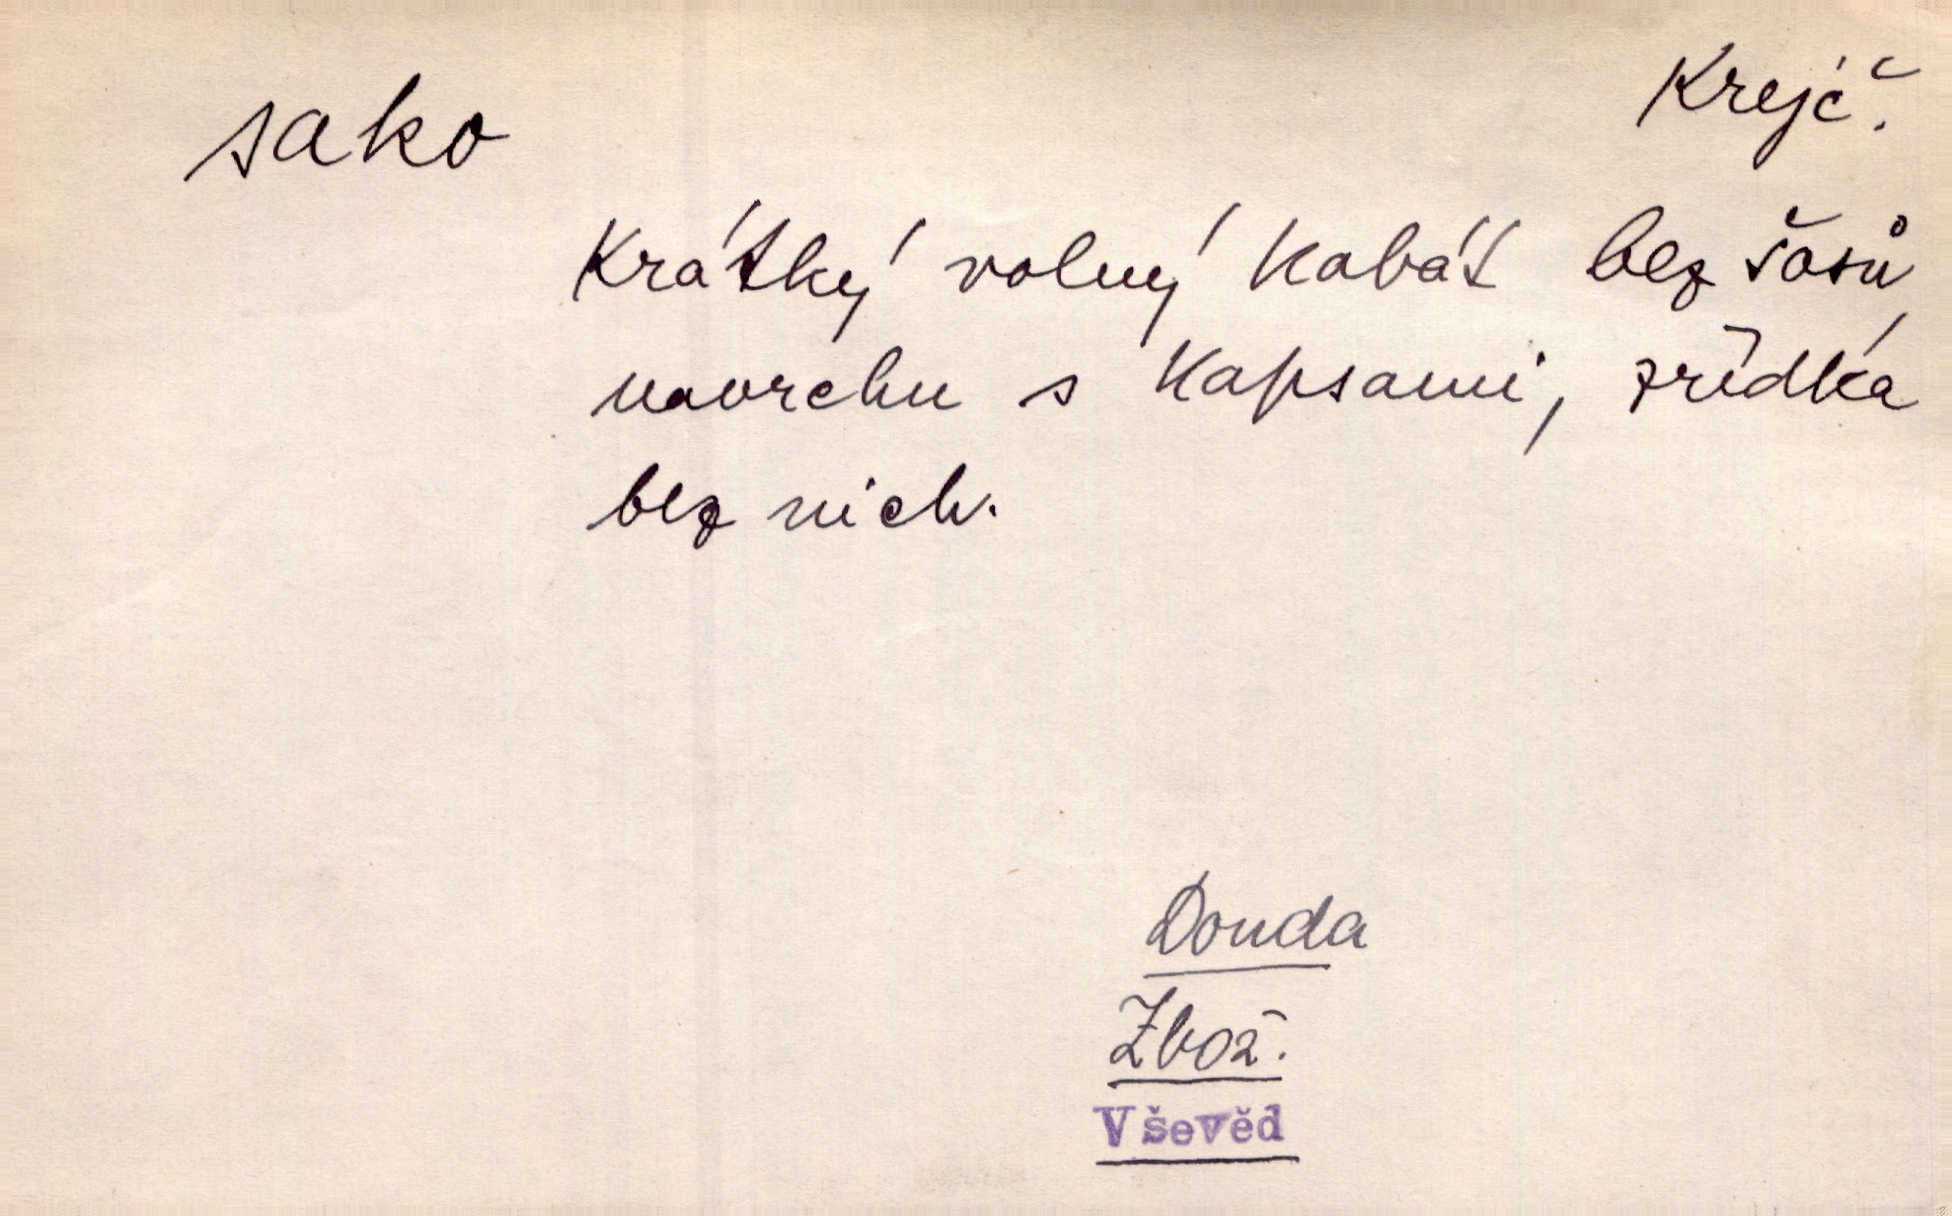 sako
Krejč.
Krátký volný kabát bez šosů,
navrchu s kapsami, zřídka
bez nich.
Douda
Zbož.
Vševěd